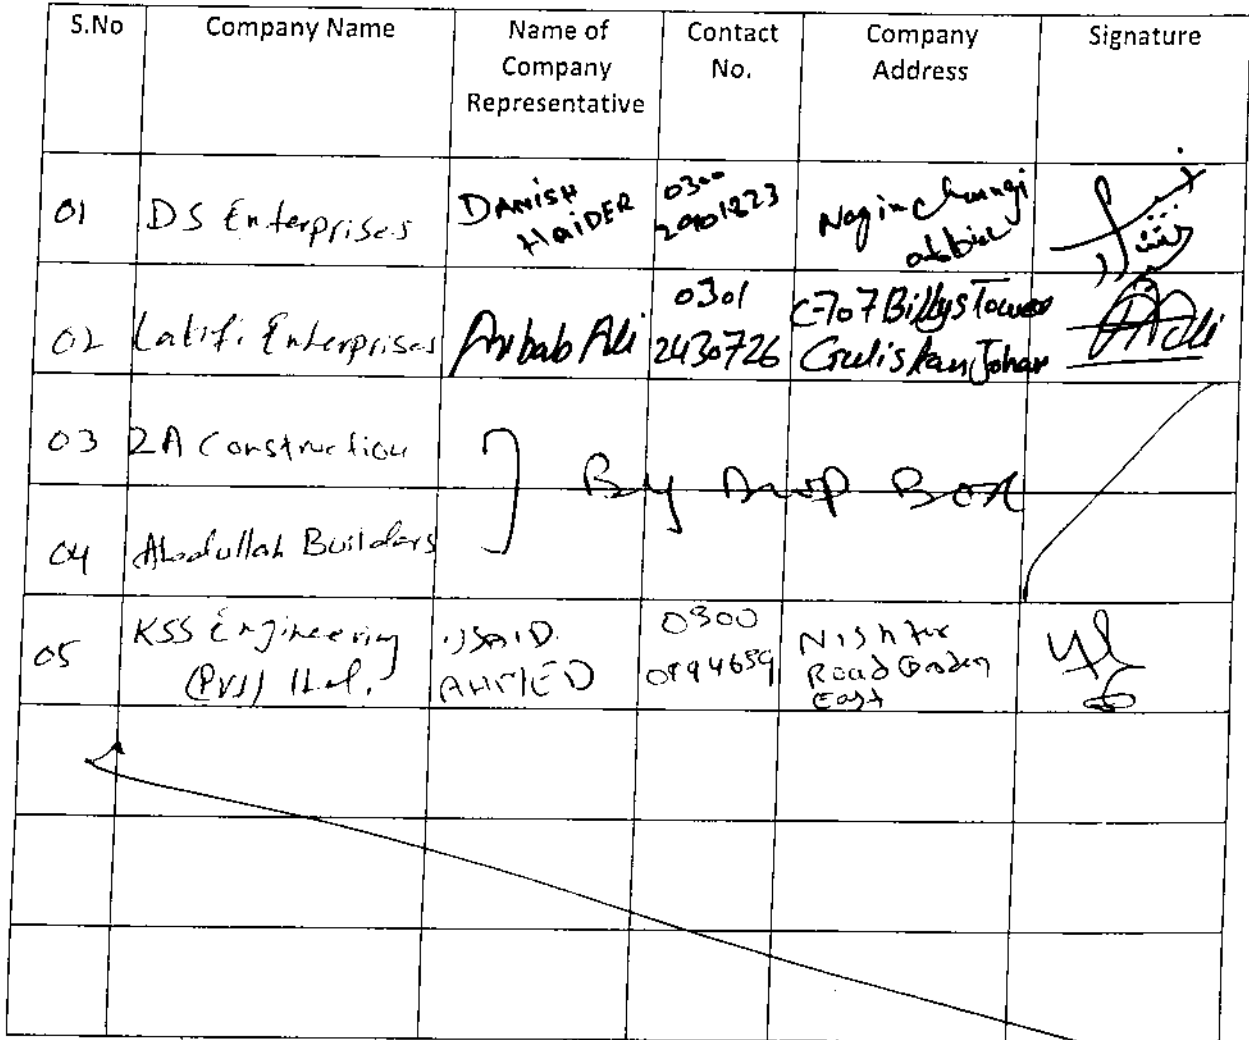 S.No Company Name Name of Company Representative Contact No. Company Address Signature
01 DS Enterprises DANISH HAIDER 0300
02 Latifi Enterprises Arbab Ali 0301 2430726 C-707 Billys Tower Gulistan Johar
03 2A Construction
By Drop Box
04 Abdullah Builders
05 KSS Engineering (Pvt) Ltd. AHMED 0300 Nishter Road Garden East